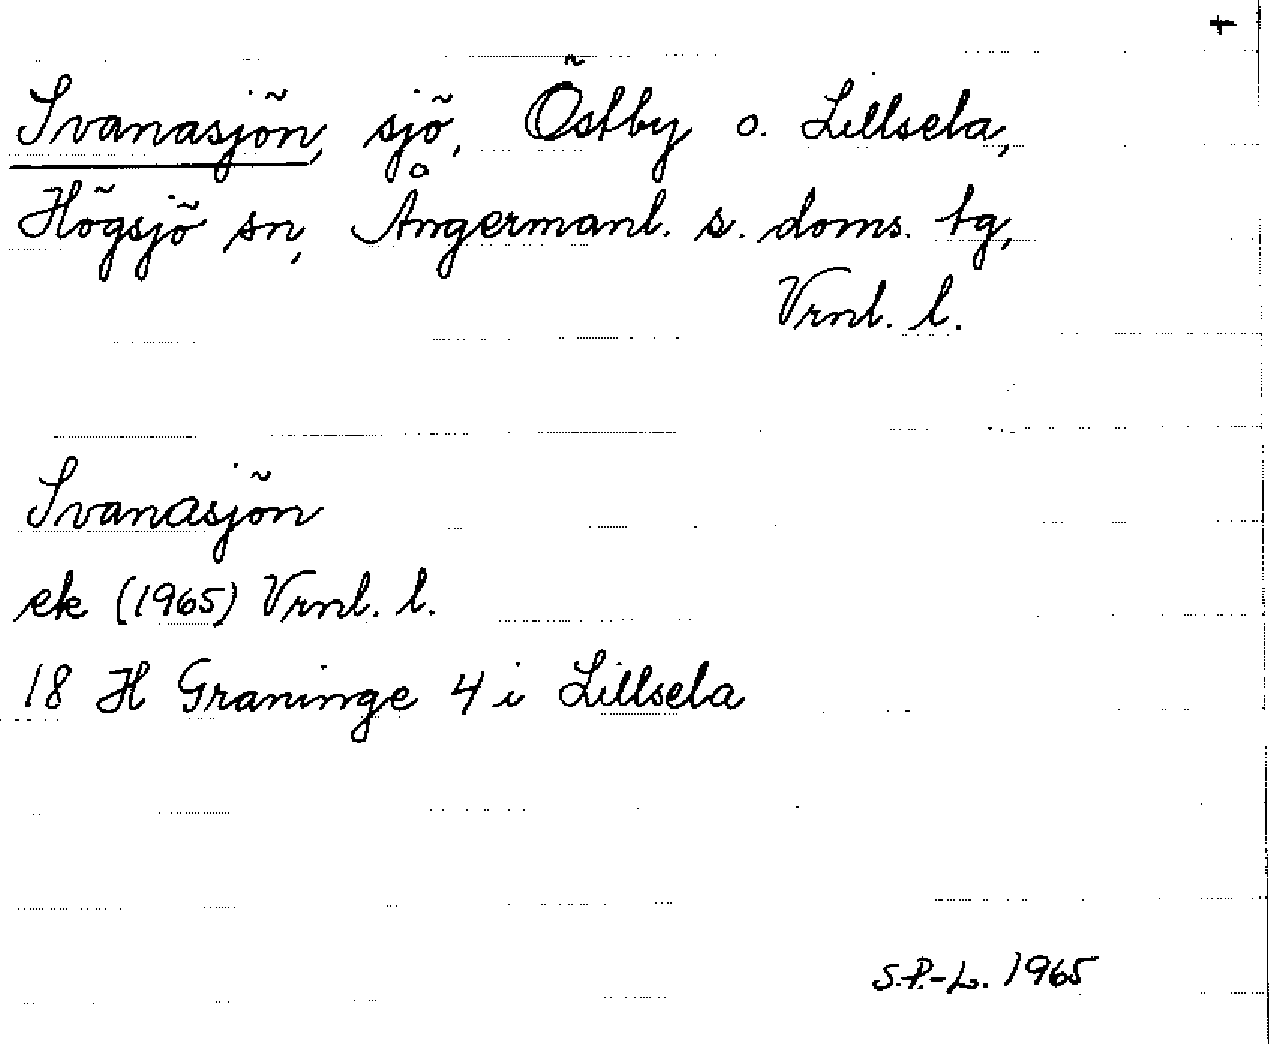 +
Svanasjön, sjö, Östby o. Lillsela,
Högsjö sn, Ångermanl. s. doms. tg,
Vrnl. l.
Svanasjön
ek (1965) Vrnl. l.
18 H Graninge 4 i Lillsela
S.P.-L. 1965